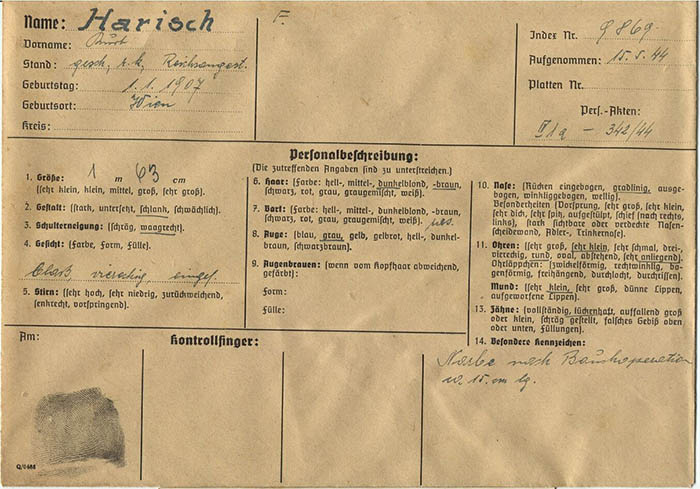 Name: Harisch
F.
Vorname: Kurt
Stand: gesch., r.k., Reichsangest.
Geburtstag: 1.1.1907
Geburtsort: Wien
Kreis:
Index Nr. 9869
Aufgenommen: 15.5.44
Platten Nr.
Pers.-Akten:
342/44
Personalbeschreibung:
(Die zutreffenden Angaben sind zu unterstreichen.)
1. Größe: 1 m 63 cm
(sehr klein, klein, mittel, groß, sehr groß).
2. Gestalt: (stark, untersetzt, schlank, schwächlich).
3. Schulterneigung: (schräg, waagrecht).
4. Gesicht: (Farbe, Form, Fülle).
Blaß, viereckig, eingef.
5. Stirn: (sehr hoch, sehr niedrig, zurückweichend,
senkrecht, vorspringend).
6. Haar: (Farbe: hell-, mittel-, dunkelblond, -braun,
schwarz, rot, grau, graugemischt, weiß).
7. Bart: (Farbe: hell-, mittel-, dunkelblond, -braun,
schwarz, rot, grau, graugemischt, weiß).
8. Auge: (blau, grau, gelb, gelbrot, hell-, dunkel-
braun, schwarzbraun).
9. Augenbrauen: (wenn vom Kopfhaar abweichend,
gefärbt):
Form:
Fülle:
10. Nase: (Rücken eingebogen, gradlinig, ausge-
bogen, winkliggebogen, wellig).
Besonderheiten (Vorsprung, sehr groß, sehr klein,
sehr dick, sehr spitz, aufgestülpt, schief (nach rechts,
links), stark sichtbare oder verdeckte Nasen-
scheidewand, Adler-, Trinkernase).
11. Ohren: (sehr groß, sehr klein, sehr schmal, drei-,
viereckig, rund, oval, abstehend, sehr anliegend).
Ohrläppchen: (zwickelförmig, rechtwinklig, bo-
genförmig, freihängend, durchlocht, durchrissen).
Mund: (sehr klein, sehr groß, dünne Lippen,
aufgeworfene Lippen).
13. Zähne: (vollständig, lückenhaft, auffallend groß
oder klein, schräg gestellt, falsches Gebiß oben
oder unten, Füllungen).
14. Besondere Kennzeichen:
Narbe nach Bauchoperation
15 cm lg.
Am:
Kontrollfinger: